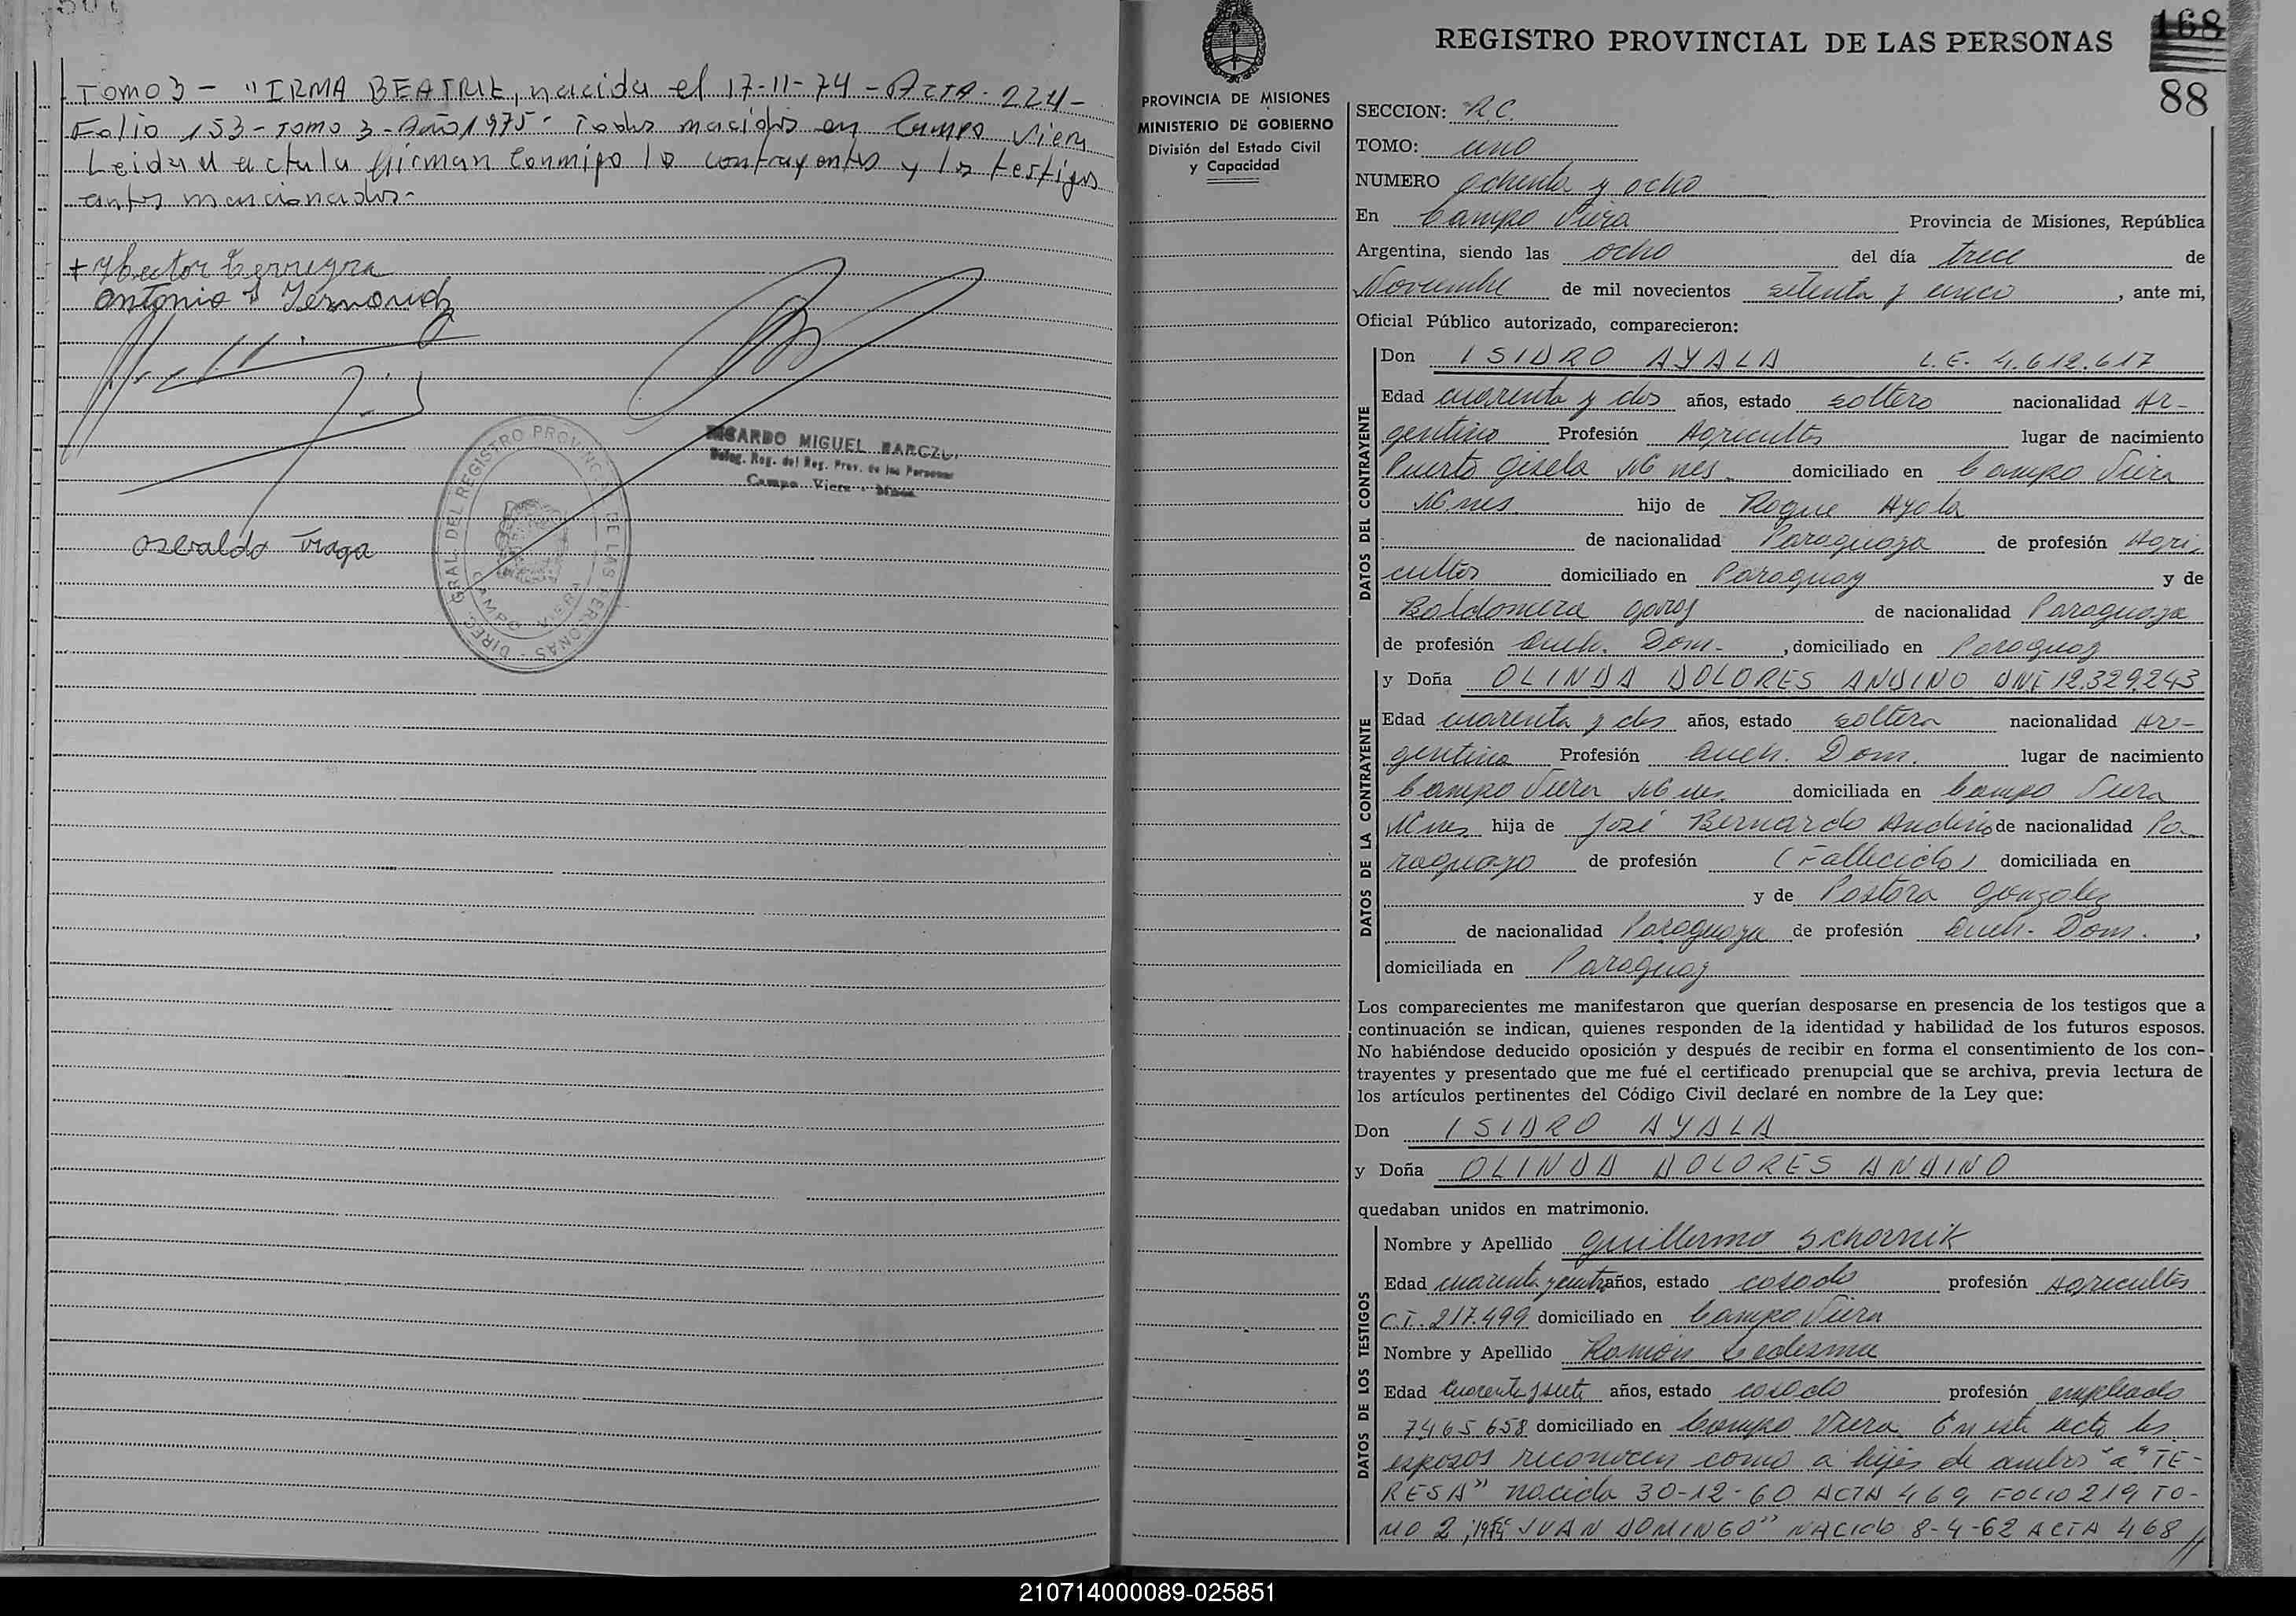 Tomo 3 - "IRMA BEATRIZ, nacida el 17-11-74 - Acta. 224 -
Folio 153 - Tomo 3 - Año 1975 - Todos nacidos en Campo Viera
Leida el acta la firman conmigo los contrayentes y los testigos
antes mencionados.-
+ Hector Cerregra
Antonio Fernandz
Osvaldo Fraga
DIREC. GRAL. DEL REGISTRO PROVINCIAL DE LAS PERSONAS
CAMPO VIERA
RICARDO MIGUEL BARCZU
Deleg. Reg. del Reg. Prov. de las Personas
Campo Viera - Mnes.
REGISTRO PROVINCIAL DE LAS PERSONAS
168
88
PROVINCIA DE MISIONES
MINISTERIO DE GOBIERNO
División del Estado Civil
y Capacidad
SECCION: R.C.
TOMO: uno
NUMERO ochenta y ocho
En Campo Viera Provincia de Misiones, República
Argentina, siendo las ocho del día trece de
Noviembre de mil novecientos setenta y cinco, ante mi,
Oficial Público autorizado, comparecieron:
DATOS DEL CONTRAYENTE
Don ISIDRO AYALA L.E. 4.612.617
Edad cuarenta y dos años, estado soltero nacionalidad Ar-
gentino Profesión Agricultor lugar de nacimiento
Puerto Gisela Mnes. domiciliado en Campo Viera
Mnes hijo de Roque Ayala
de nacionalidad Paraguaya de profesión Agri-
cultor domiciliado en Paraguay y de
Baldomera Godoy de nacionalidad Paraguaya
de profesión Queh. Dom. , domiciliado en Paraguay
DATOS DE LA CONTRAYENTE
y Doña OLINDA DOLORES ANDINO DNI 12.329.243
Edad cuarenta y dos años, estado soltera nacionalidad Ar-
gentina Profesión Queh. Dom. lugar de nacimiento
Campo Viera Mnes. domiciliada en Campo Viera
Mnes hija de José Bernardo Andino de nacionalidad Pa-
raguayo de profesión (Fallecido) domiciliada en
y de Pastora Gonzalez
de nacionalidad Paraguaya de profesión Queh. Dom. ,
domiciliada en Paraguay
Los comparecientes me manifestaron que querían desposarse en presencia de los testigos que a
continuación se indican, quienes responden de la identidad y habilidad de los futuros esposos.
No habiéndose deducido oposición y después de recibir en forma el consentimiento de los con-
trayentes y presentado que me fué el certificado prenupcial que se archiva, previa lectura de
los artículos pertinentes del Código Civil declaré en nombre de la Ley que:
Don ISIDRO AYALA
y Doña OLINDA DOLORES ANDINO
quedaban unidos en matrimonio.
DATOS DE LOS TESTIGOS
Nombre y Apellido Guillermo Schornik
Edad cuarenta y cuatro años, estado casado profesión Agricultor
C.I. 217.499 domiciliado en Campo Viera
Nombre y Apellido Ramón Ledesma
Edad cuarenta y siete años, estado casado profesión empleado
7465658 domiciliado en Campo Viera. En este acto los
esposos reconocen como a hijos de ambos "a" TE-
RESA" nacida 30-12-60 ACTA 469 FOLIO 219 TO-
MO 2, "JUAN DOMINGO" NACIDO 8-4-62 ACTA 468 //
210714000089-025851